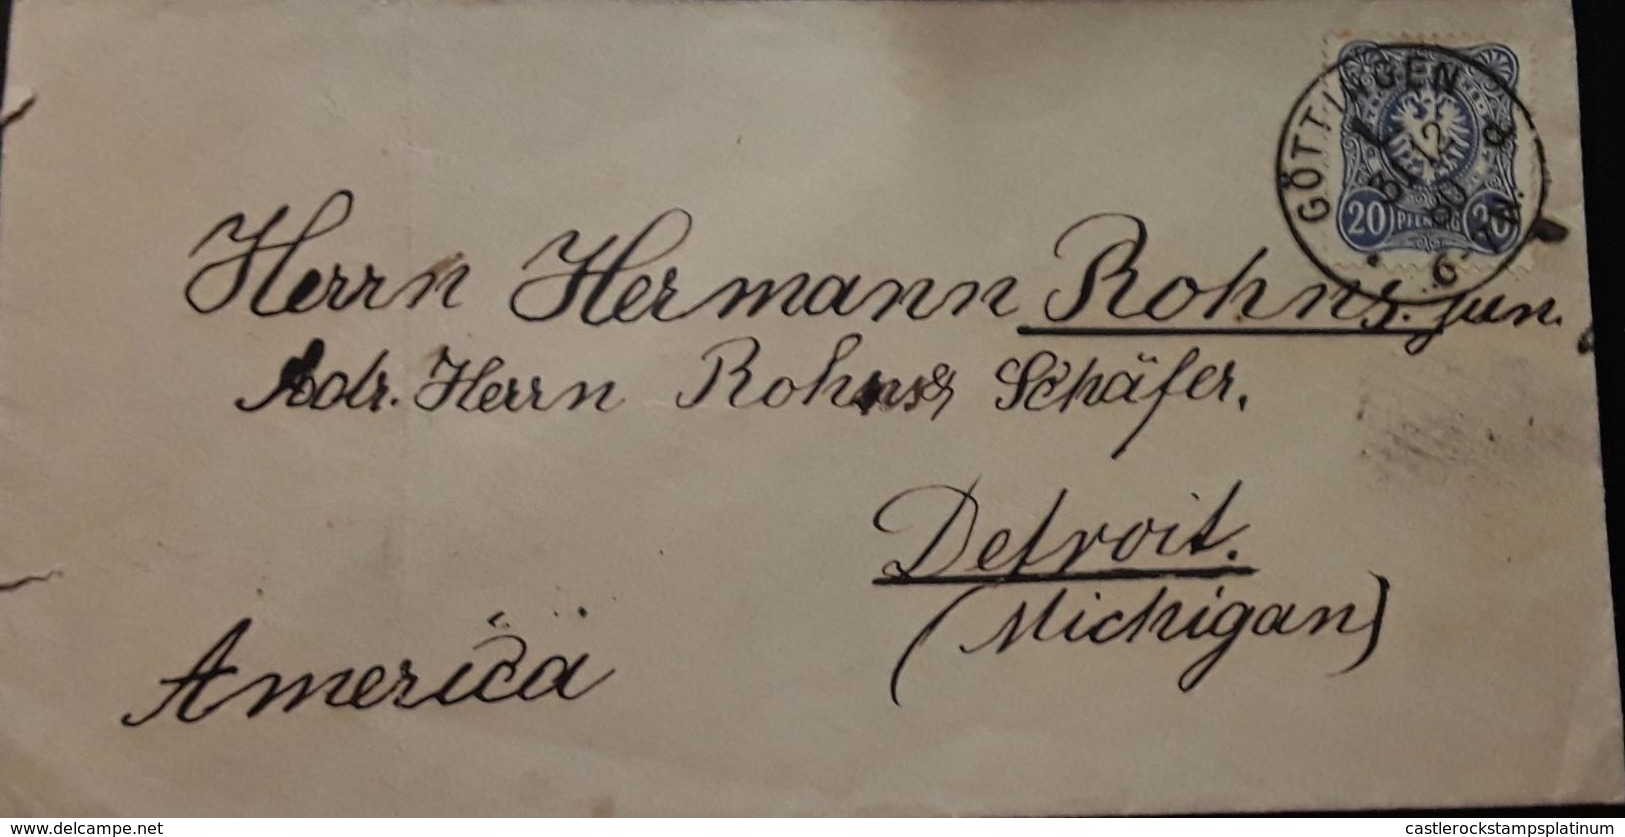 GÖTTINGEN
12
90
6-7N.
20 PFENNIG 20
Herrn Hermann Rohns. jun.
Adr. Herrn Rohns & Schäfer.
Detroit.
(Michigan)
America
delcampe.net
castlerockstampsplatinum